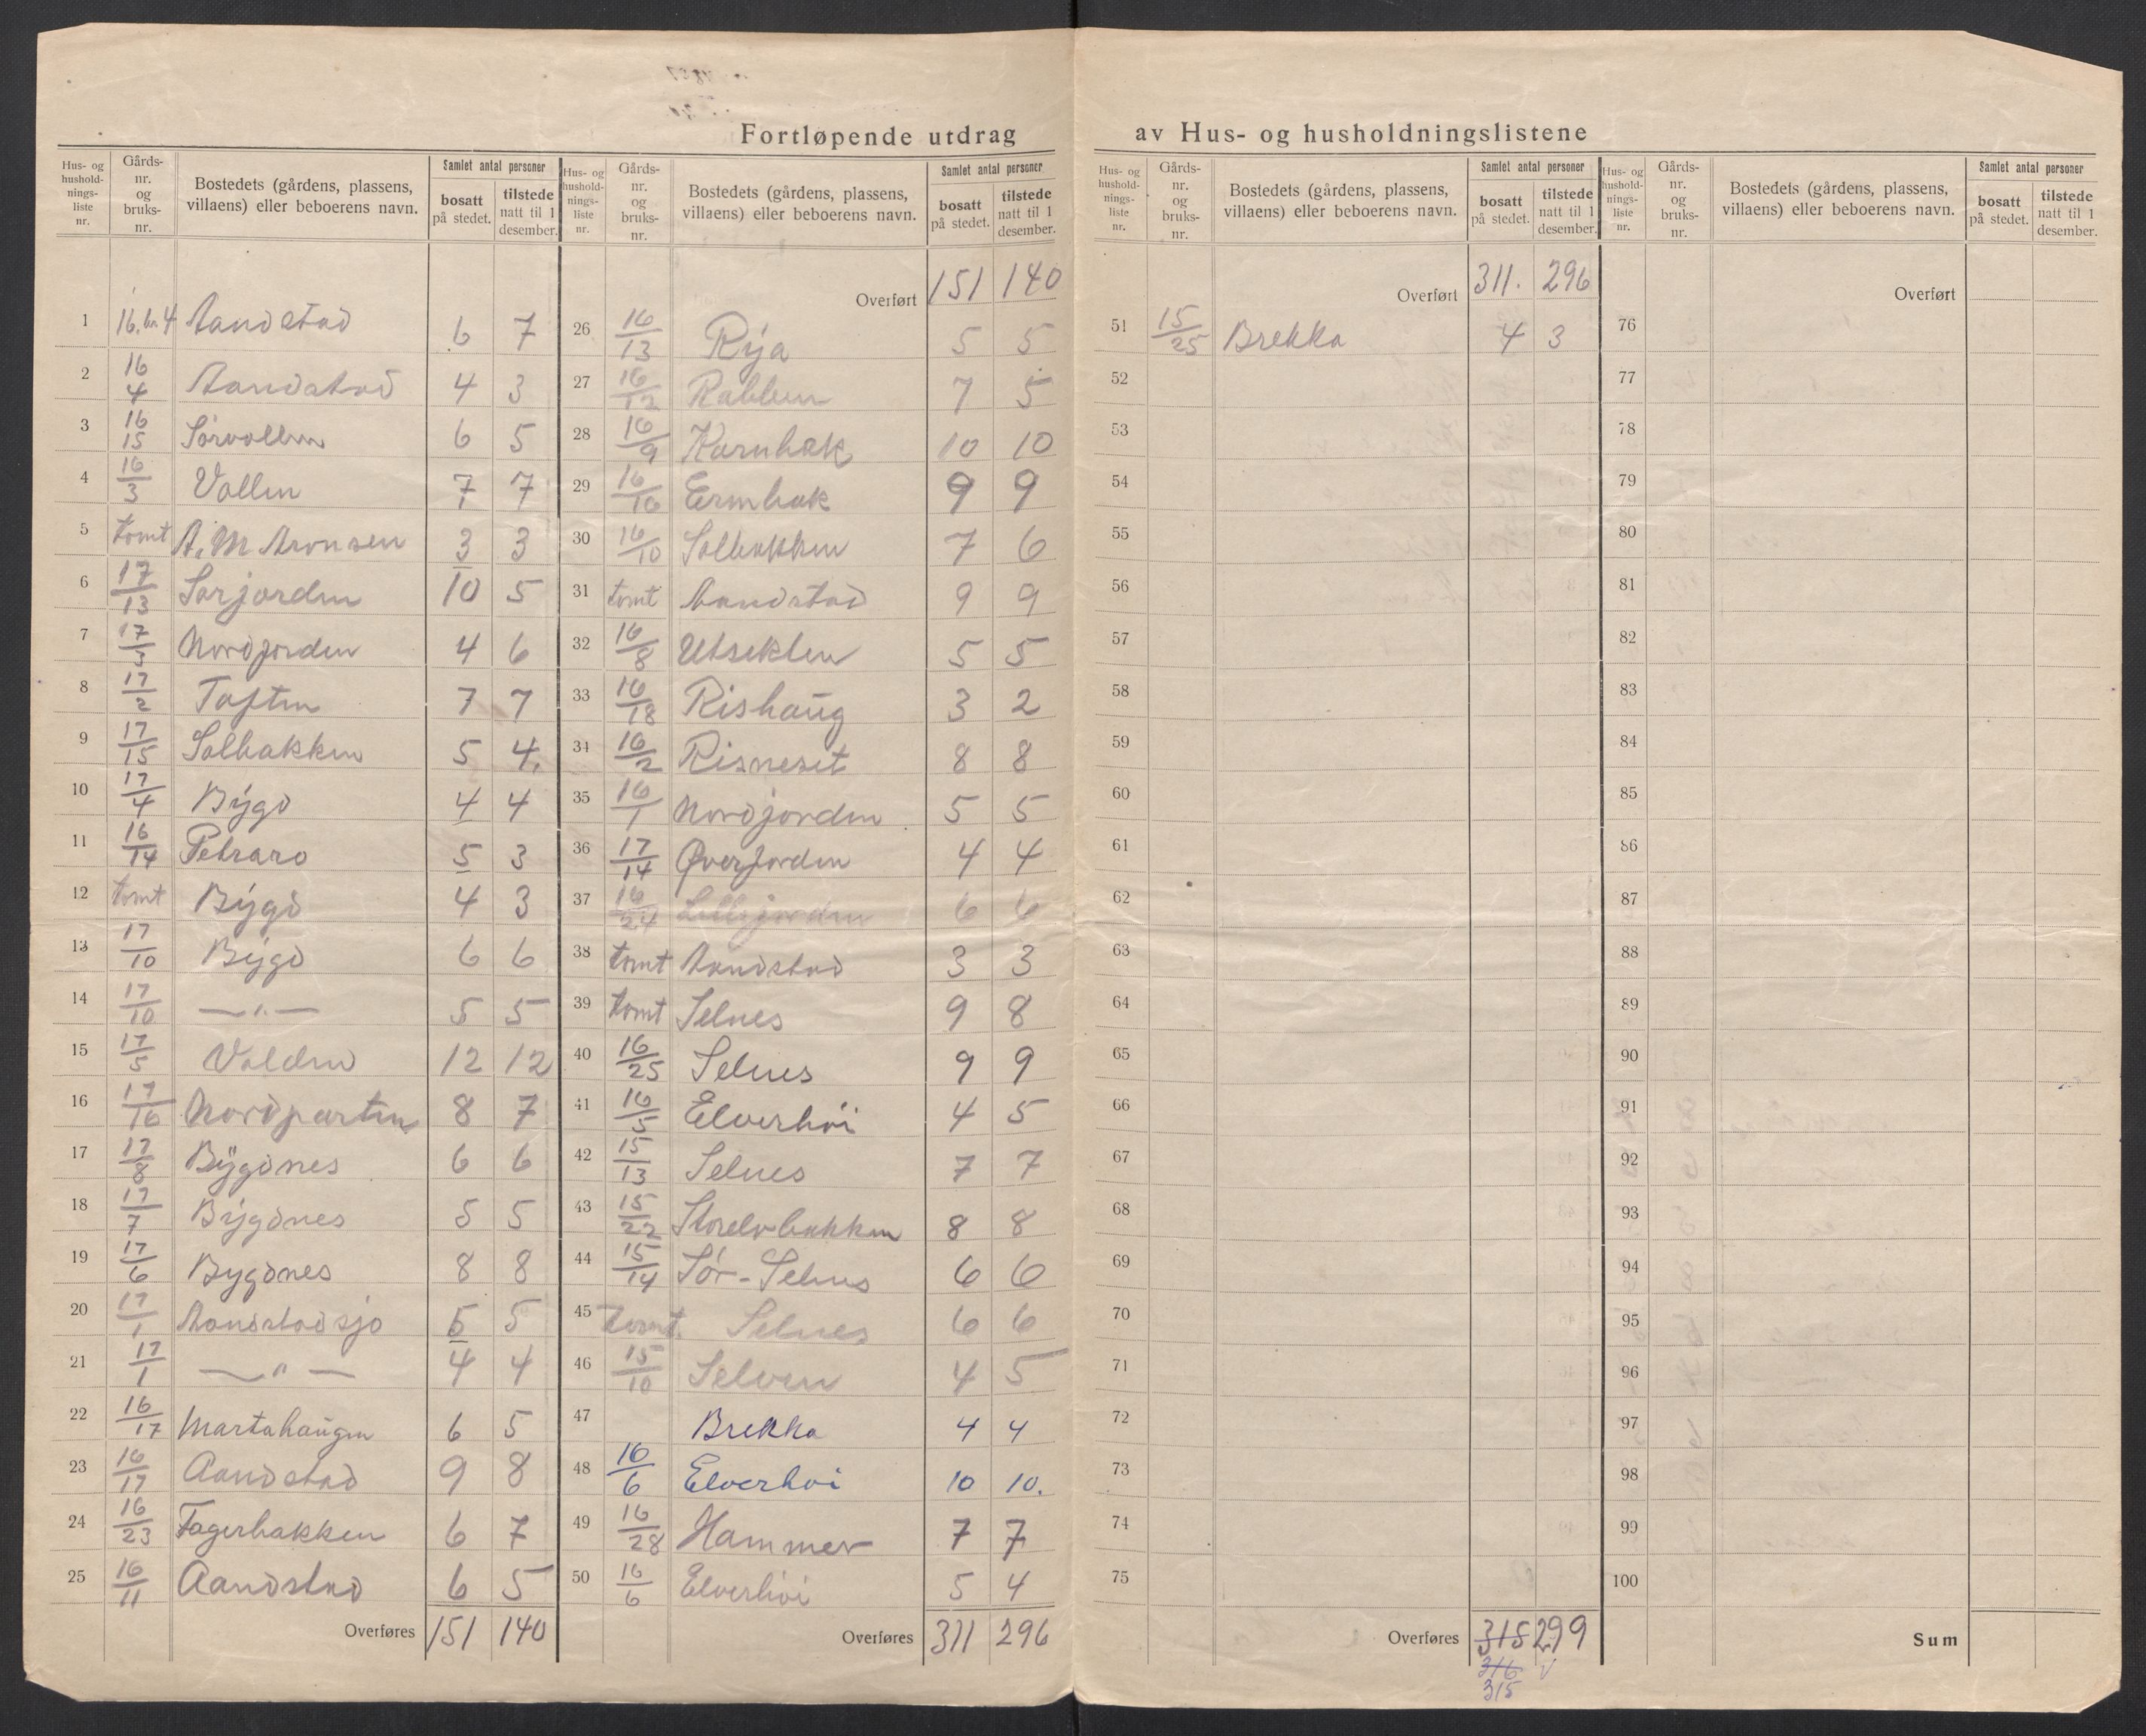 Fortløpende utdrag av Hus- og husholdningslistene
Hus- og husholdnings-liste nr. Gårds-nr. og bruks-nr. Bostedets (gårdens, plassens, villaens) eller beboerens navn. Samlet antal personer bosatt på stedet. tilstede natt til 1 desember.
1 16, bn 4 Aandstad 6 7
2 16/4 Aandstad 4 3
3 16/15 Sørvollen 6 5
4 16/3 Vollen 7 7
5 tomt A. M Aronsen 3 3
6 17/13 Sørjorden 10 5
7 17/3 Nordjorden 4 6
8 17/2 Toften 7 7
9 17/15 Solbakken 5 4,
10 17/4 Bygd 4 4
11 16/14 Petraro 5 3
12 tomt Bygd 4 3
13 17/10 Bygd 6 6
14 17/10 —"— 5 5
15 17/5 Volden 12 12
16 17/16 Nordparten 8 7
17 17/8 Bygdnes 6 6
18 17/7 Bygdnes 5 5
19 17/6 Bygdnes 8 8
20 17/1 Aandstadsjø 5 5
21 17/1 —"— 4 4
22 16/17 Martahaugen 6 5
23 16/17 Aandstad 9 8
24 16/23 Fagerbakken 6 7
25 16/11 Aandstad 6 5
Overføres 151 140
Hus- og husholdnings-liste nr. Gårds-nr. og bruks-nr. Bostedets (gårdens, plassens, villaens) eller beboerens navn. Samlet antal personer bosatt på stedet. tilstede natt til 1 desember.
Overført 151 140
26 16/13 Rya 5 5
27 16/12 Rabben 7 5
28 16/9 Karnbæk 10 10
29 16/16 Ermbak 9 9
30 16/10 Solbakken 7 6
31 tomt Aandstad 9 9
32 16/8 Utsikten 5 5
33 16/18 Rishaug 3 2
34 16/2 Risneset 8 8
35 16/1 Nordjorden 5 5
36 17/14 Øverjorden 4 4
37 16/24 Lillejorden 6 6
38 tomt Aandstad 3 3
39 tomt Selnes 9 8
40 16/25 Selnes 9 9
41 16/5 Elverhöi 4 5
42 15/13 Selnes 7 7
43 15/22 Storelvbakken 8 8
44 15/14 Sør-Selnes 6 6
45 Tomt. Selnes 6 6
46 15/10 Selven 4 5
47 Brekka 4 4
48 16/6 Elverhöi 10 10.
49 16/28 Hammer 7 7
50 16/6 Elverhöi 5 4
Overføres 311 296
Hus- og husholdnings-liste nr. Gårds-nr. og bruks-nr. Bostedets (gårdens, plassens, villaens) eller beboerens navn. Samlet antal personer bosatt på stedet. tilstede natt til 1 desember.
Overført 311. 296
51 15/25 Brekka 4 3
52
53
54
55
56
57
58
59
60
61
62
63
64
65
66
67
68
69
70
71
72
73
74
75
Overføres 315 299
316 √
315
Hus- og husholdnings-liste nr. Gårds-nr. og bruks-nr. Bostedets (gårdens, plassens, villaens) eller beboerens navn. Samlet antal personer bosatt på stedet. tilstede natt til 1 desember.
Overført
76
77
78
79
80
81
82
83
84
85
86
87
88
89
90
91
92
93
94
95
96
97
98
99
100
Sum